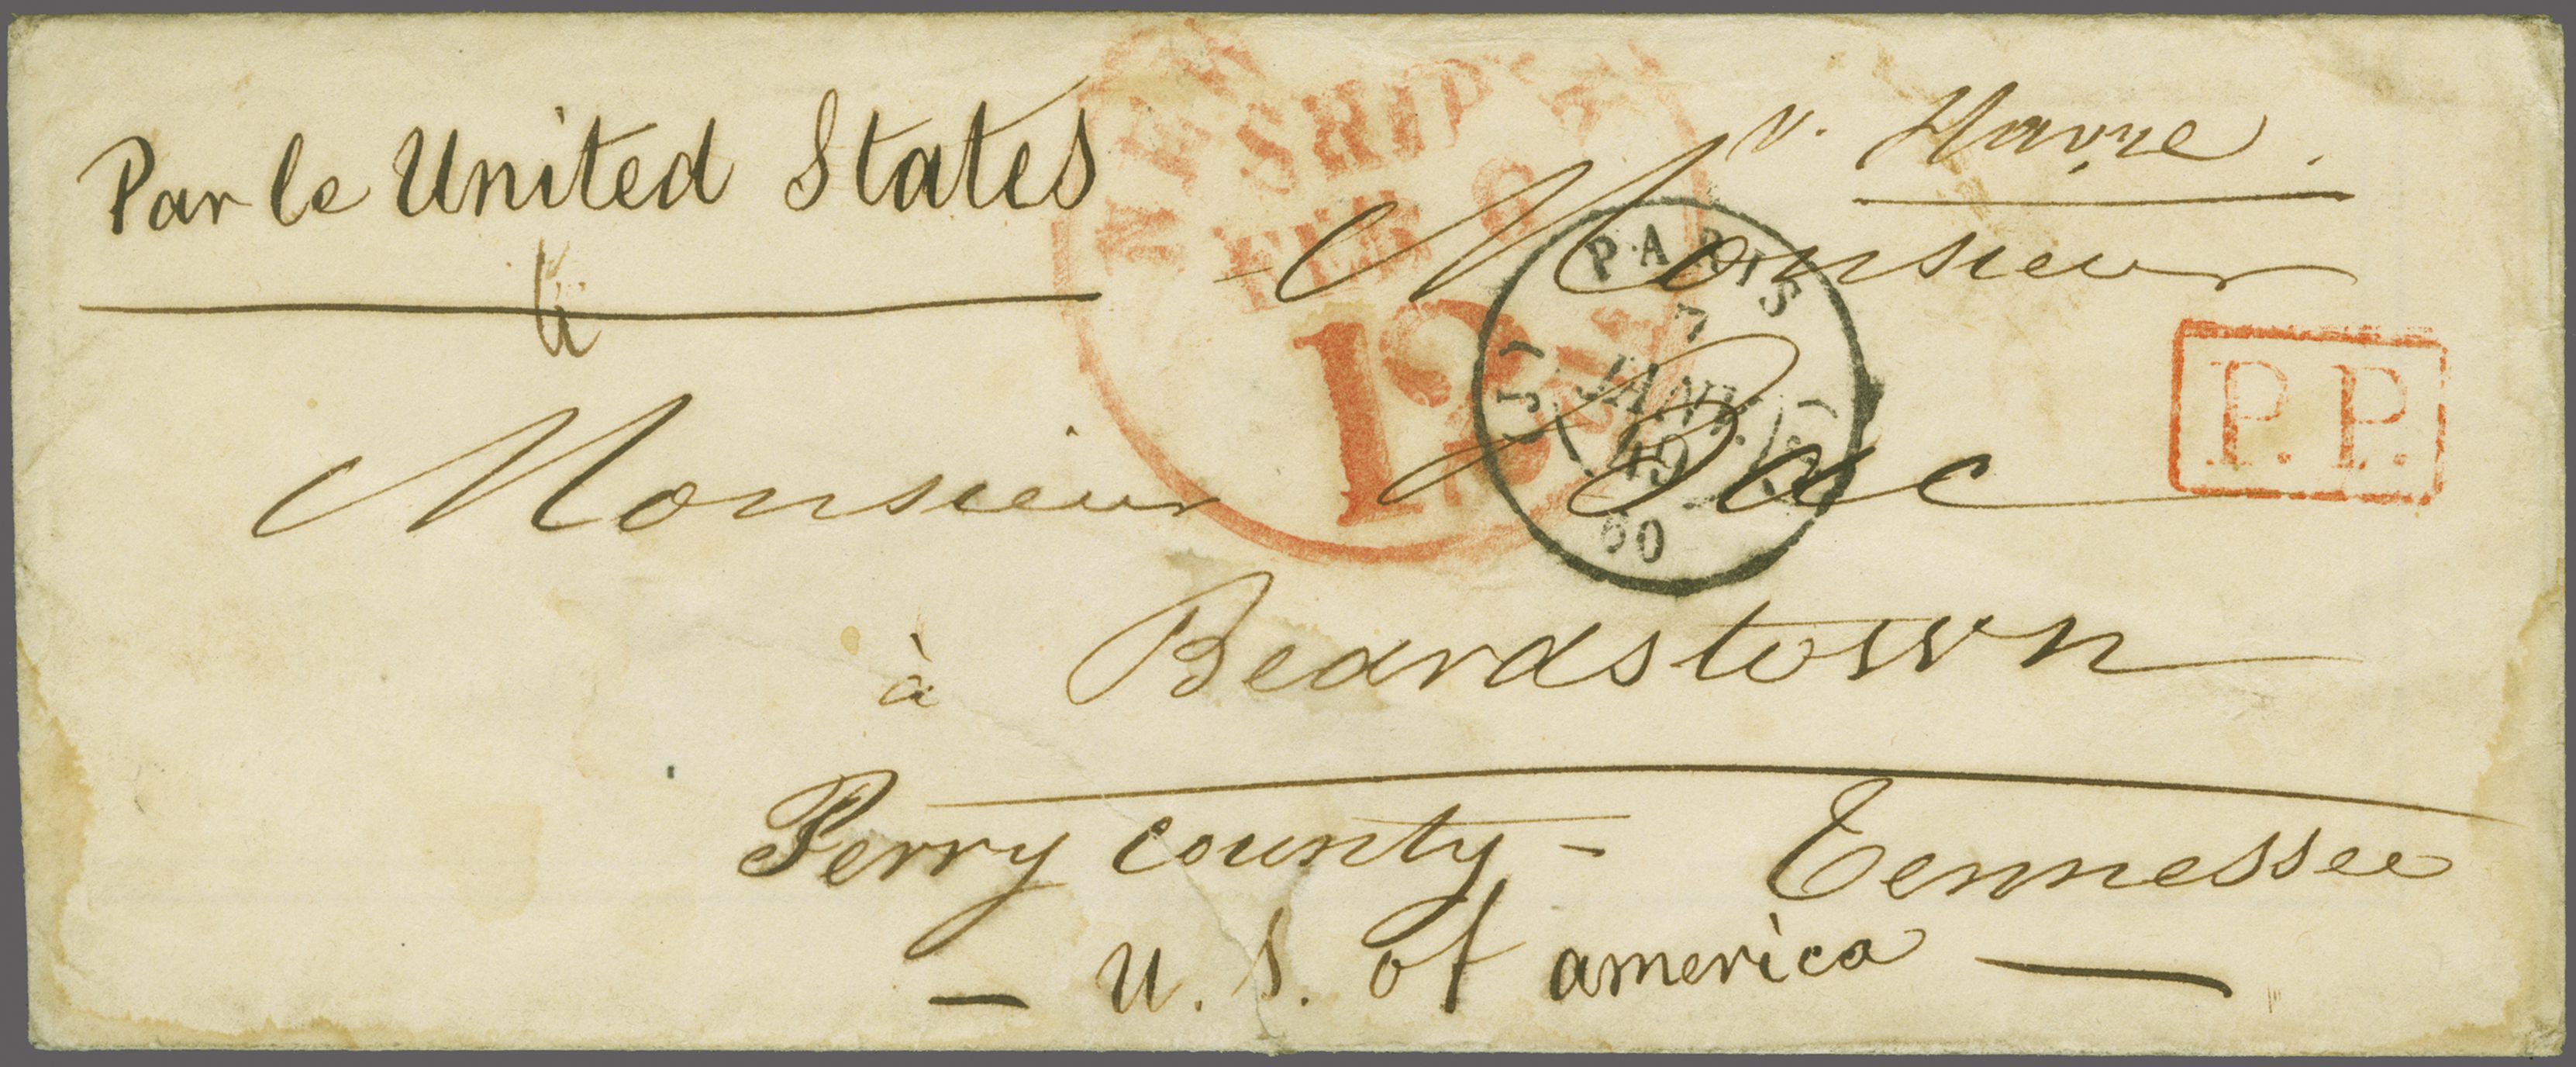 Par le United States
v. Havre.
NEW YORK
SHIP
FEB 8
12
Monsieur
PARIS
7
JANV.
49
(60)
P.P.
Monsieur
à Beardstown
Perry county - Tennessee
- U. S. of america -